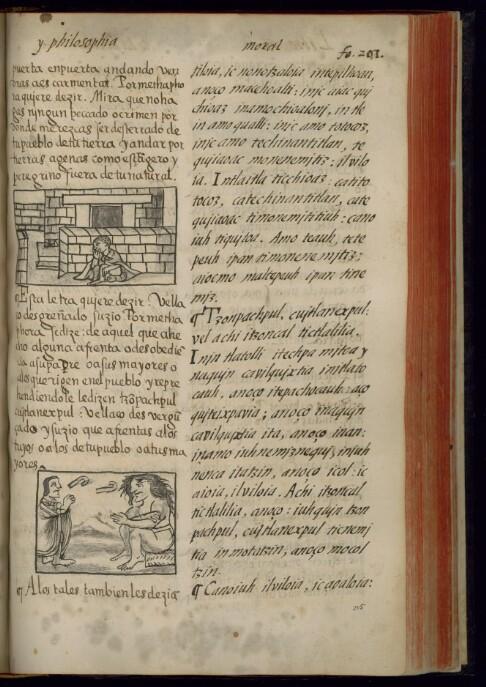 y philosophia
moral
fo. 201.
puerta enpuerta andando ven
Por metapho
ra quiere dezir. Mira que no ha
gas ningun peccado o crimen por
donde merezcas ser desterrado de
tu pueblo de tu tierra y andar por
tierras agenas como estrāgero y
peregrino fuera de tu natural.
Esta letra quiere dezir: Vella
co desgreñado suzio Por meta
phora se dize: de aquel que a he
cho alguna afrenta o desobedie
cia a su padre o a sus mayores o
a los que rigen en el pueblo y repre
hendiendole le dizen tzōpachpul
cuitlanexpul: Vellaco desvergō
çado y suzio que afrentas a los
tuyos o a los de tu pueblo o a tus ma
yores.
¶ A los tales tambien les dezia
tiloia, ic nonotzaloia intepilhoan,
anoço macehoalli: inic aiac qui
chioaz in amo chioaloni, in tle
in amo qualli: inic amo totocoz,
inic amo techinantitlan, te
quiaoac monenemitiz: ilvilo
ia. Intlaitla ticchioaz: catito
tocoz, catechinantitlan, cate
quiaoac timonemititiuh: cano
iuh tiquitoa. Amo teauh, tete
peuh ipan timonenemitiz:
aiocmo maltepeuh ipan tine
miz.
¶ Tzonpachpul, cuitlanexpul:
vel achi itzoncal tictlalilia.
Inin tlatolli itechpa mitoa y
naquin cavilquixtia in itlato
cauh, anoço itepachocauh: aço
quiteixpavia; anoço inaquin
cavilquixtia ita, anoço inan:
in amo iuh nemiznequi, iniuh
nenca itatzin, anoço icol: ic
aioia, ilviloia. Achi itzoncal,
tictlalilia, anoço: iuhquin tzon
pachpul, cuitlanexpul ticnemi
tia in motatzin, anoço mocol
tzin.
¶ Canoiuh ilviloia, ic aoaloia: